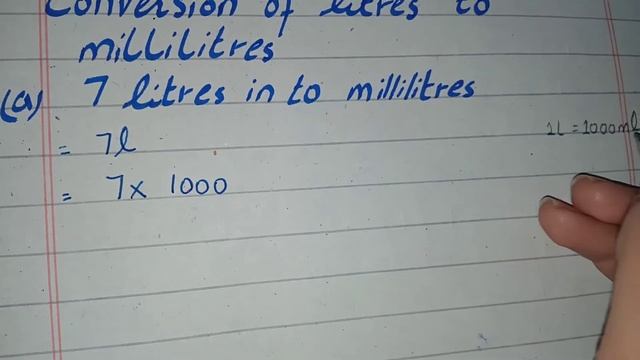 Conversion of litres to
millilitres
(a) 7 litres in to millilitres
= 7l
1L = 1000ml
= 7x 1000